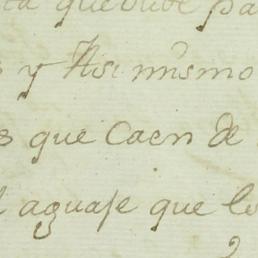 que
y Assi mismo
que Caen de
aguaje que lo